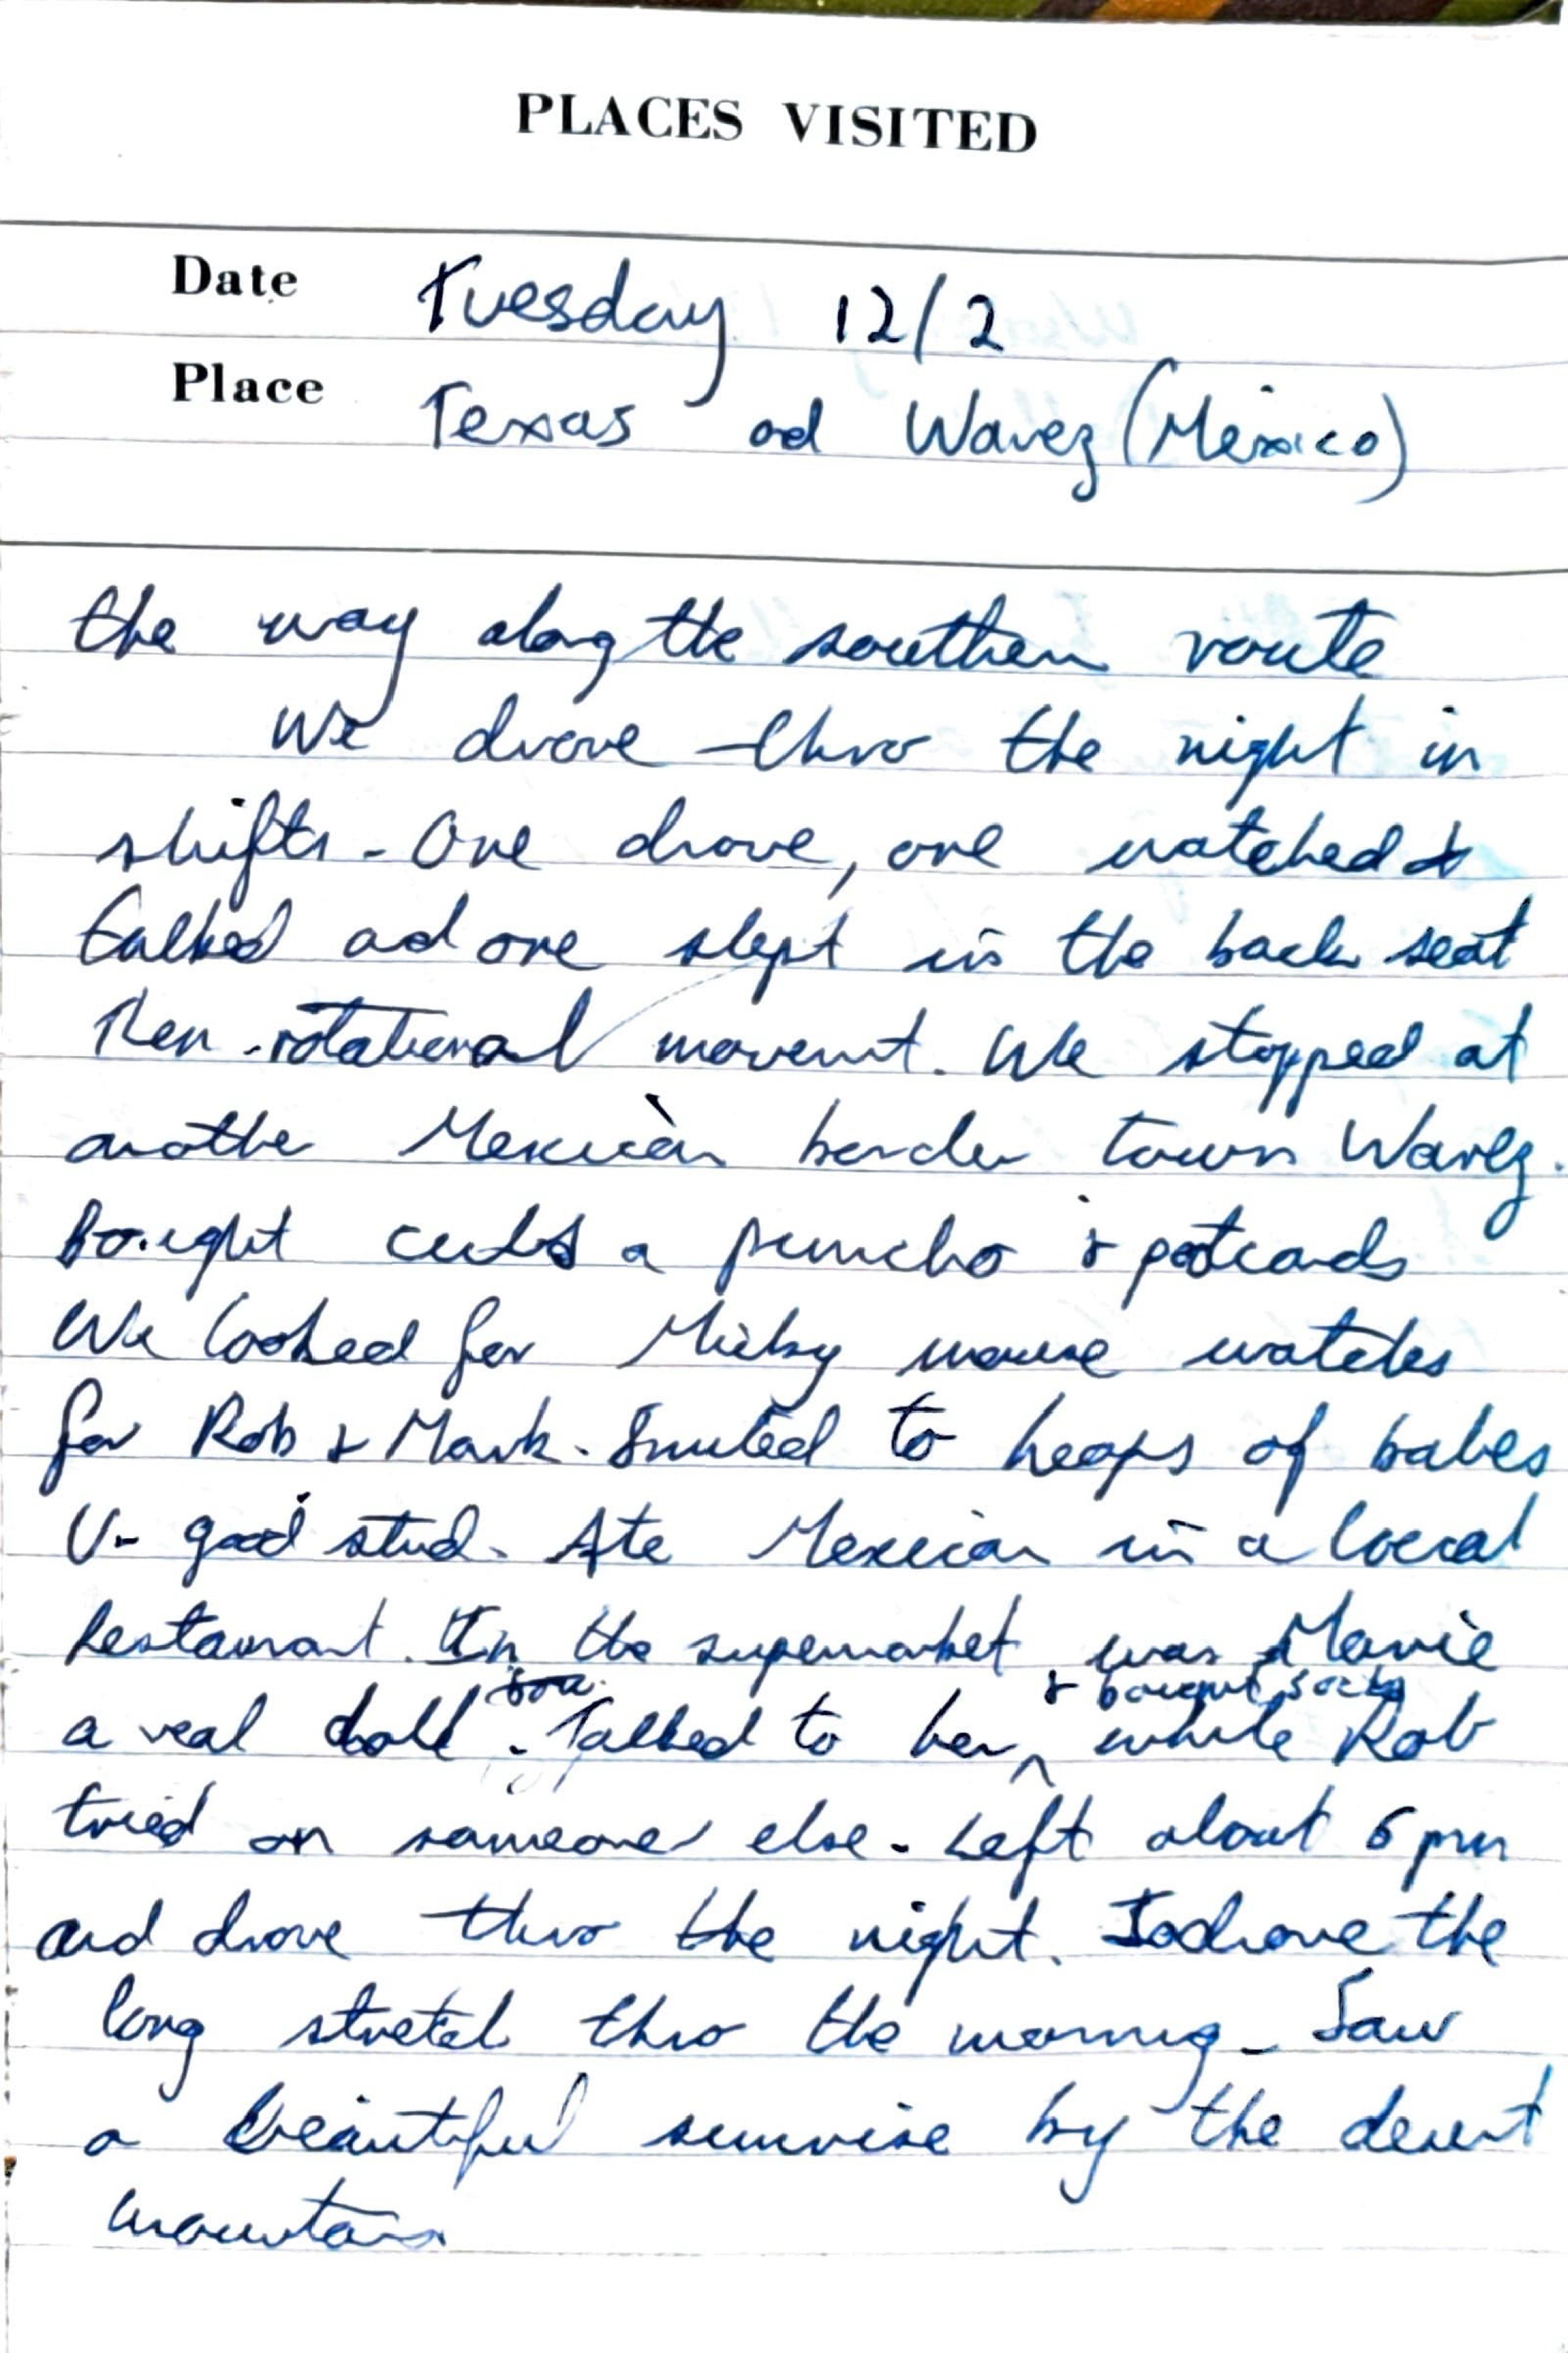 PLACES VISITED
Date Tuesday 12/2
Place Texas ad Wavez (Mexico)
the way along the southern route
We drove thro the night in
shifts - One drove, one watched &
talked ad one slept in the back seat
Then rotational movemt. We stopped at
anothe Mexican border town Wavez.
Bought a puncho & postcards
We looked for Micky mouse watches
for Rob & Mark. Smiled to heaps of babes
V. good stud. Ate Mexican in a local
Restaurant. In the supermarket was Marie
a real doll. Talked to her & bought socks while Rob
tried on someone else. Left about 6 pm
and drove thro the night. I drove the
long stretch thro the morning - Saw
a beautiful sunrise by the desert
mountain